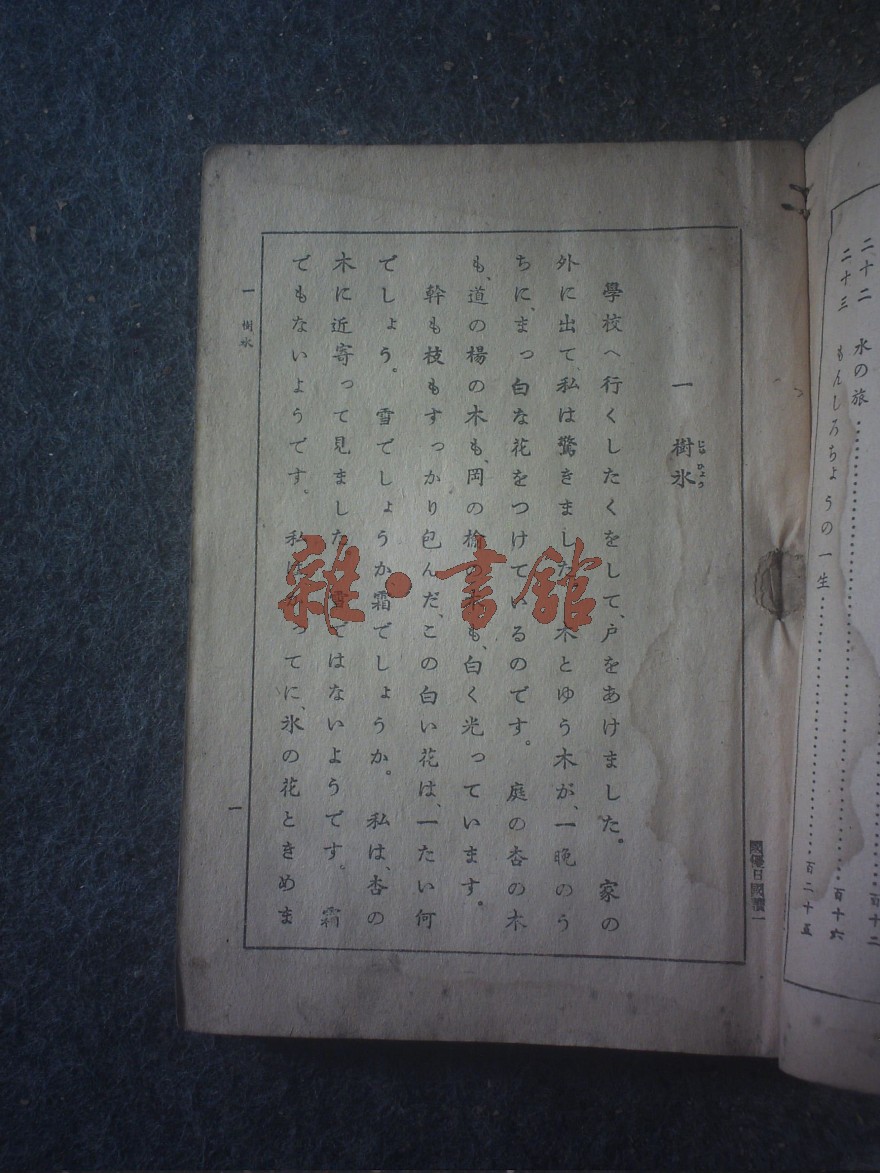 二十二 水の旅……百十二
二十三 もんしろちょうの一生……百二十五
百十六
國優日國讀一
一 樹氷
じゅ ひょう
學校へ行くしたくをして、戸をあけました。 家の
外に出て、私は驚きました。木とゆう木が、一晩のう
ちに、まっ白な花をつけているのです。 庭の杏の木
も、道の楊の木も、岡の 木も、白く光っています。
幹も枝もすっかり包んだ、この白い花は、一たい何
でしょう。 雪でしょうか霜でしょうか。 私は、杏の
木に近寄って見ました 雪ではないようです。 霜
でもないようです。 私は かってに、氷の花ときめま
一 樹氷
一
雜・書館